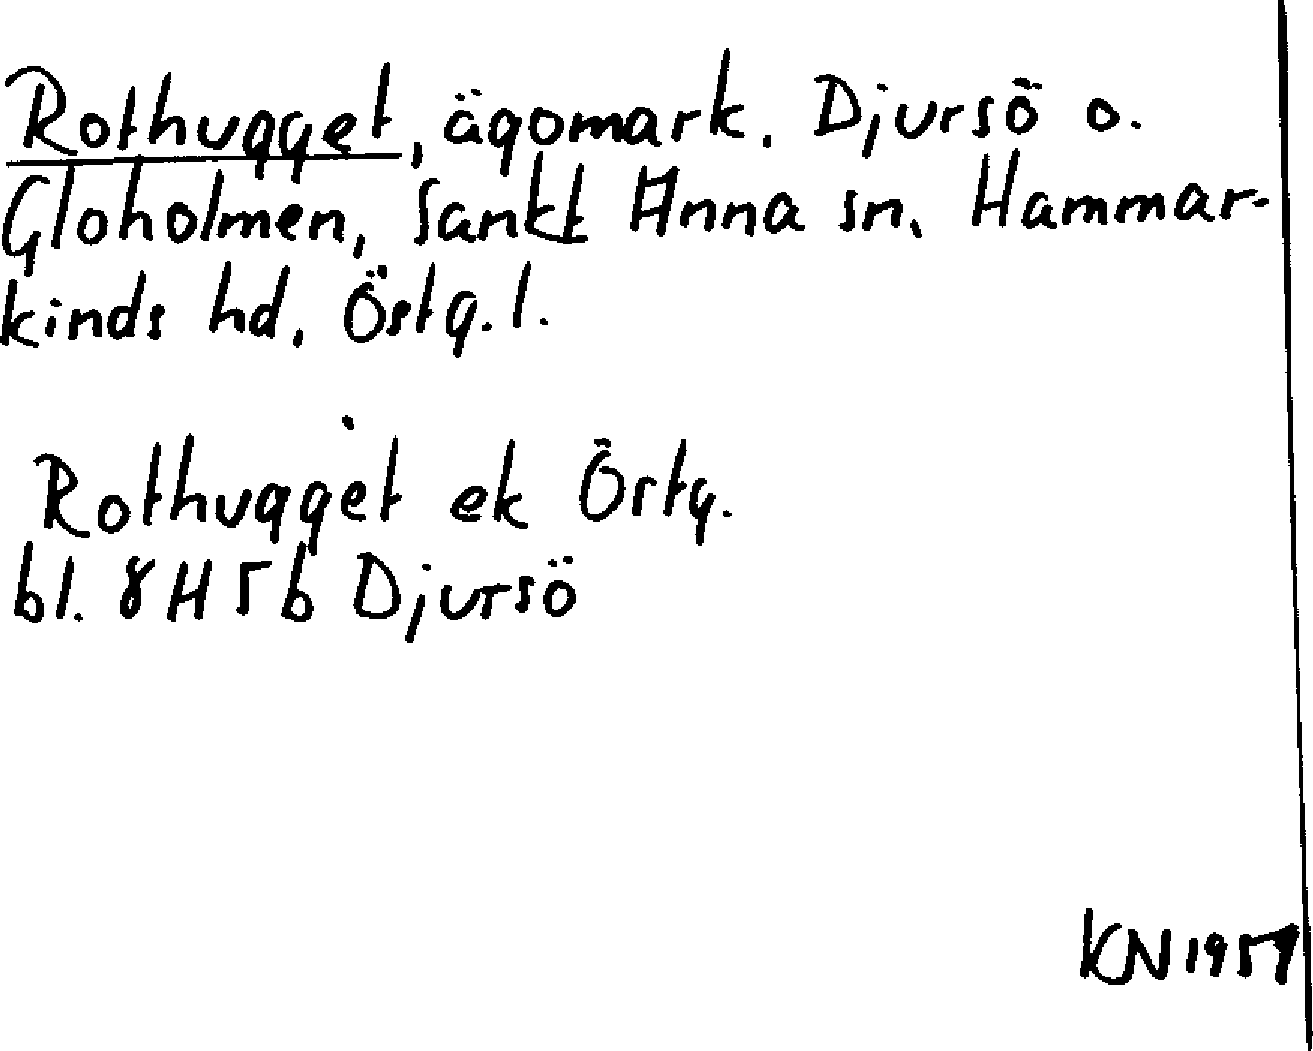 Rothugget, ägomark. Djursö o.
Gloholmen, Sankt Anna sn. Hammar-
kinds hd. Östg. l.
Rothugget ek Östg.
bl. 8H5b Djursö
KN 1957